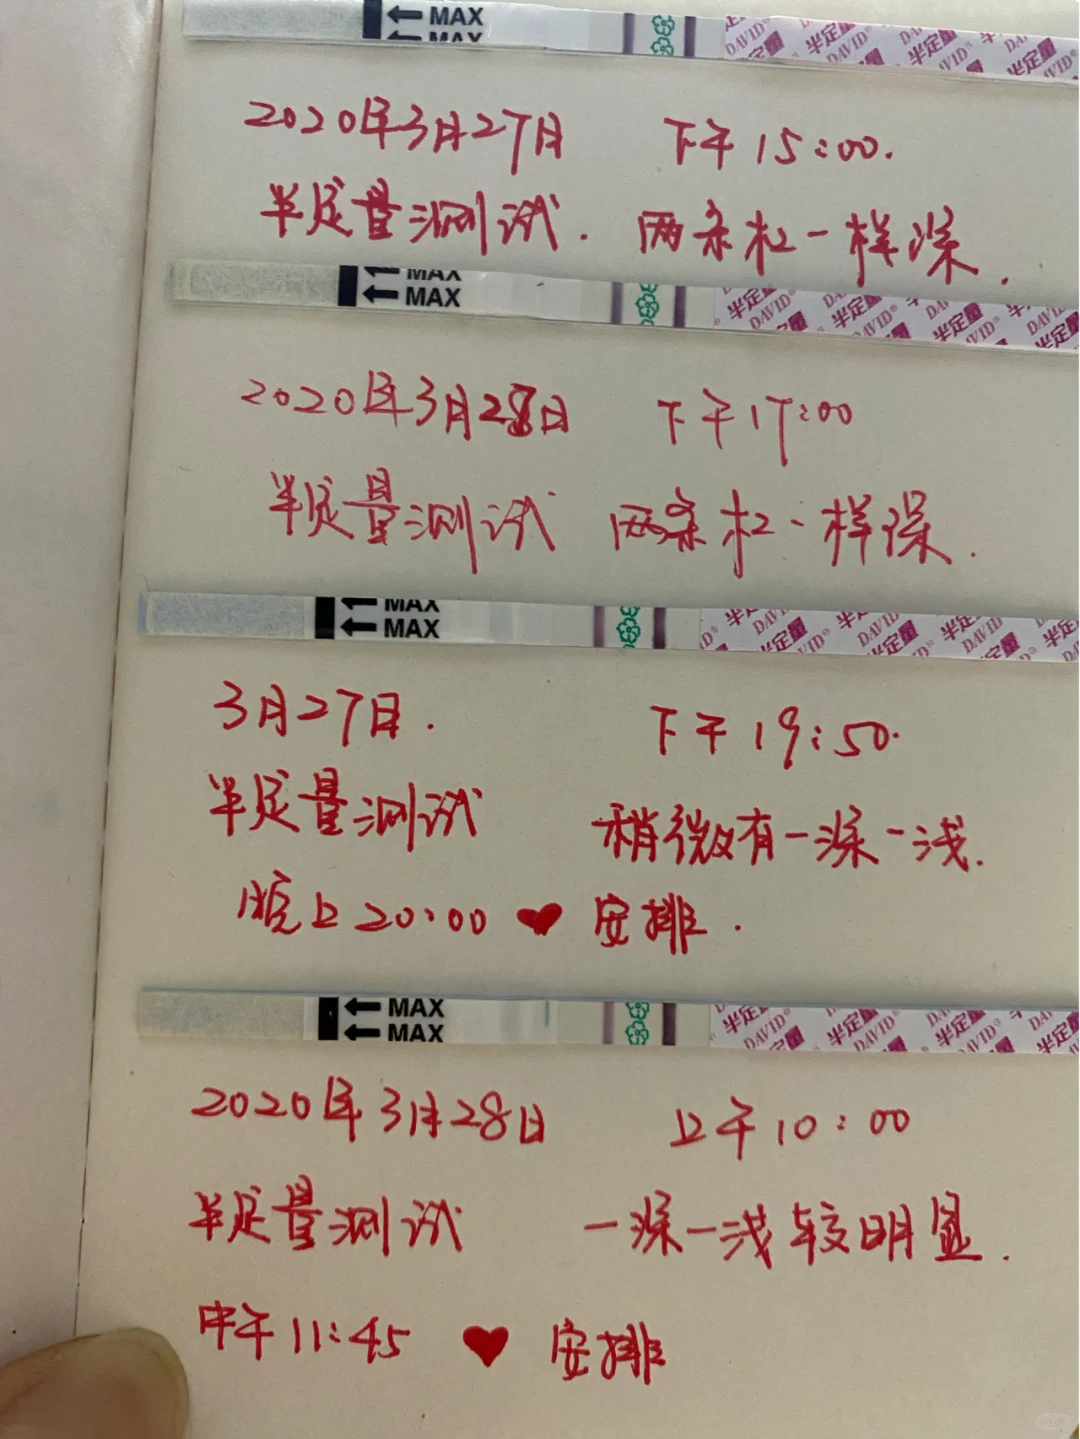 MAX
MAX
DAVID® 半定量
2020年3月27日 下午15:00.
半定量测试. 两条杠一样深.
MAX
MAX
半定量 DAVID®
2020年3月28日 下午17:00
半定量测试 两条杠一样深.
MAX
MAX
半定量 DAVID®
3月27日. 下午19:50.
半定量测试 稍微有一深一浅.
晚上20:00 ❤ 安排.
MAX
MAX
半定量 DAVID®
2020年3月28日 上午10:00
半定量测试 一深一浅较明显.
中午11:45 ❤ 安排